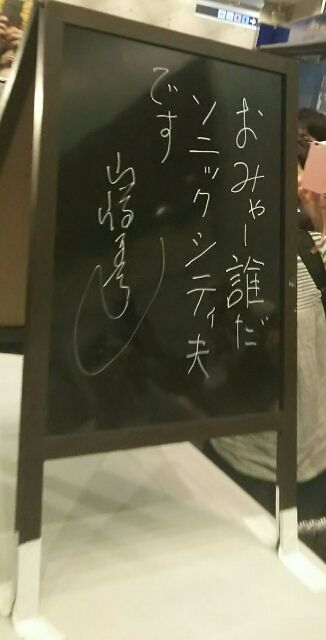 おみゃー誰だ
ソニックシティ夫
です